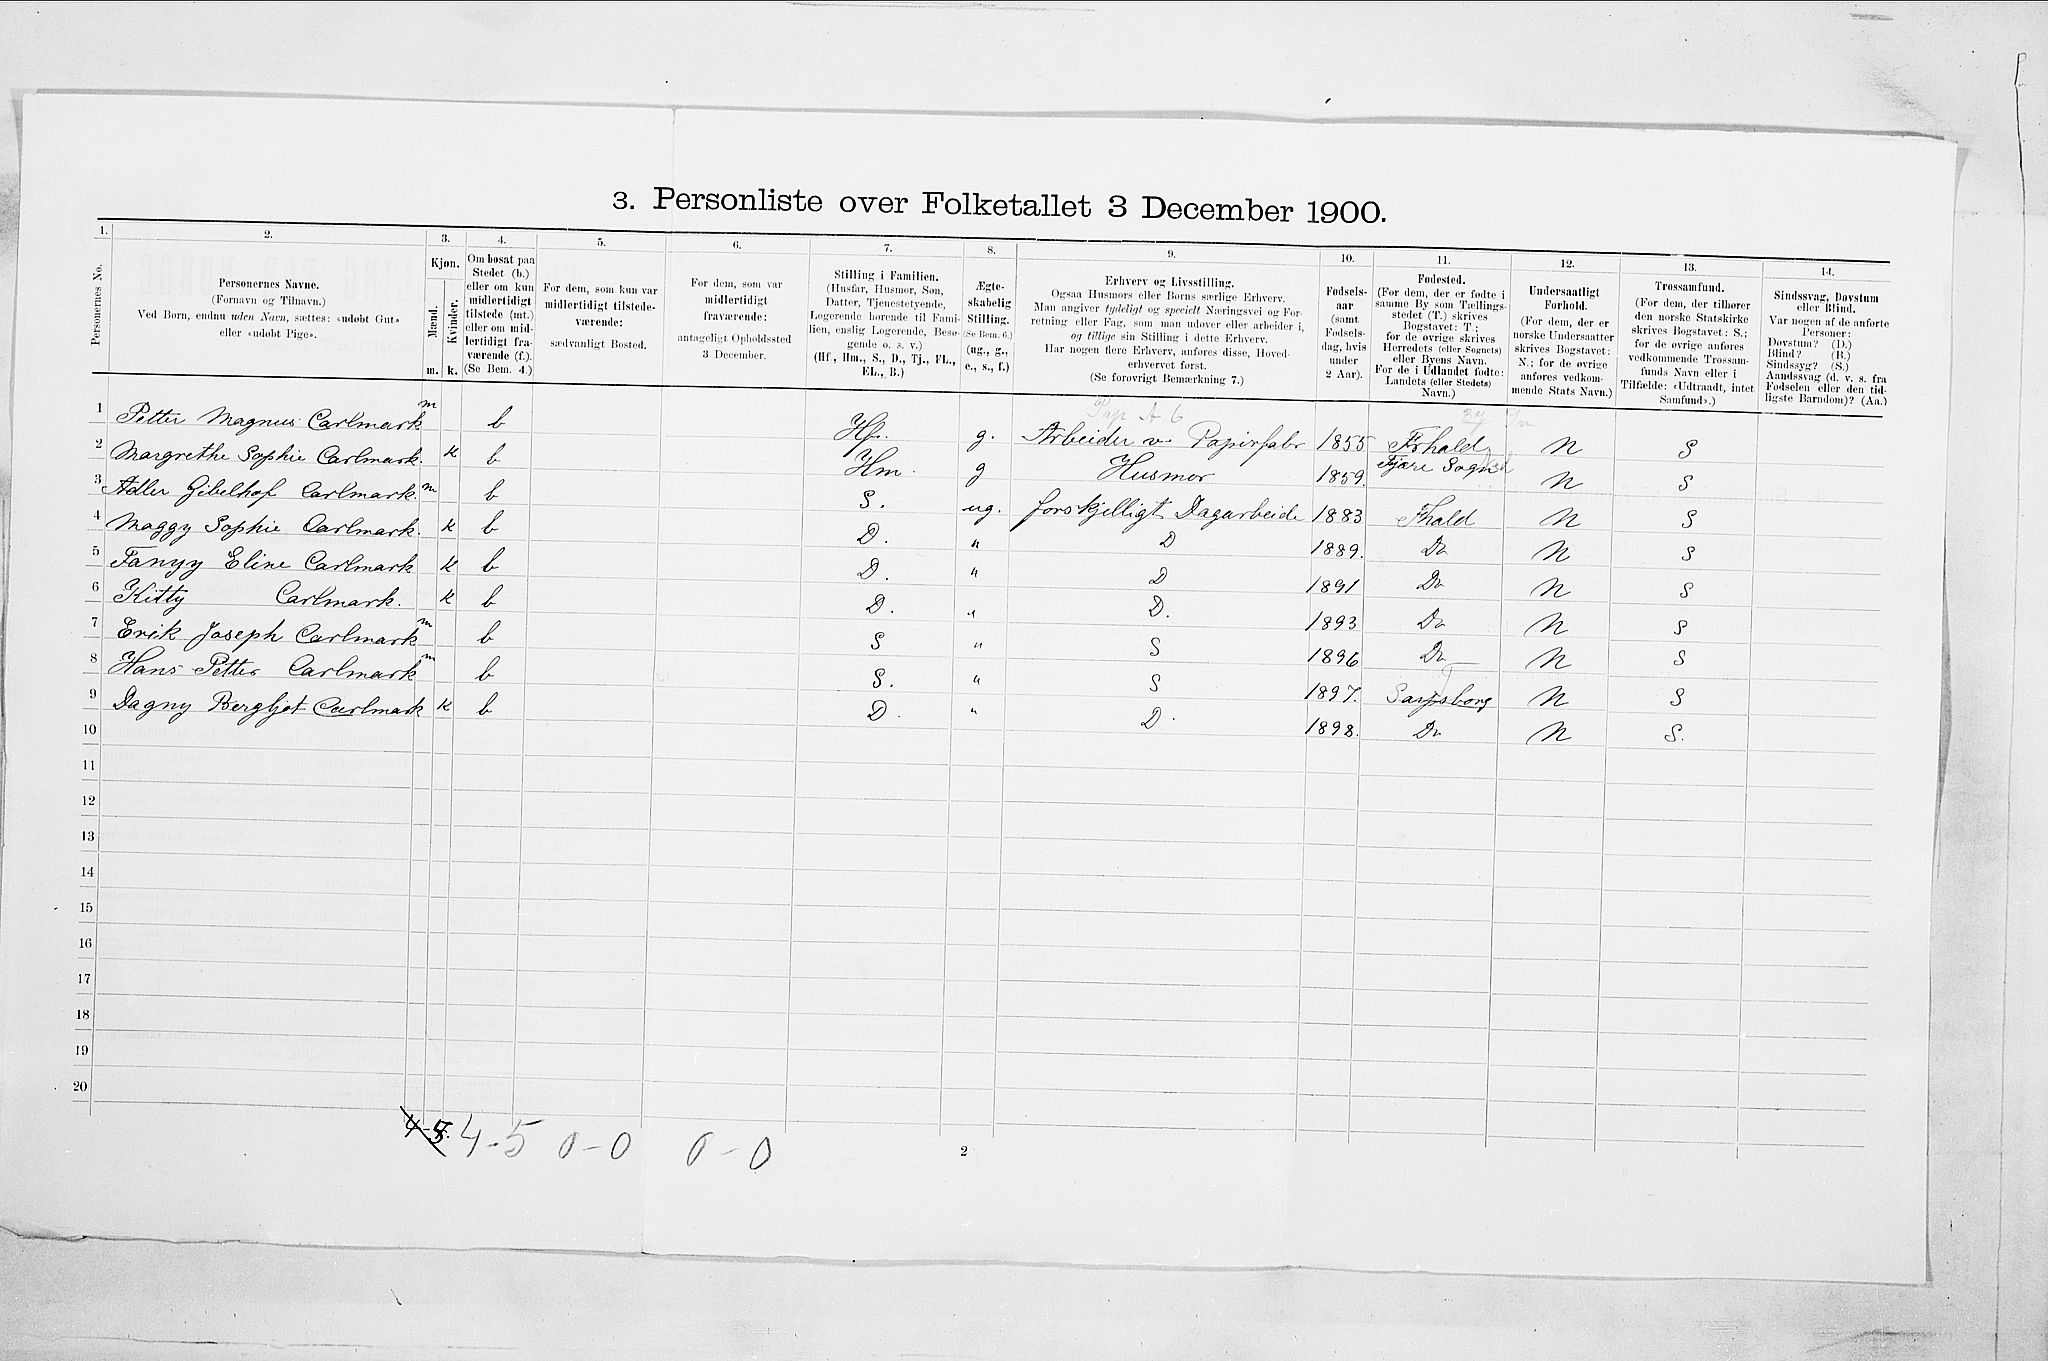 3. Personliste over Folketallet 3 December 1900.
1.
Personernes No.
2.
Personernes Navne.
(Fornavn og Tilnavn.)
Ved Børn, endnu uden Navn, sættes: «udøbt Gut»
eller «udøbt Pige».
3.
Kjøn.
Mænd.
Kvinder.
m. k.
4.
Om bosat paa
Stedet (b.)
eller om kun
midlertidigt
tilstede (mt.)
eller om mid-
lertidigt fra-
værende (f.).
(Se Bem. 4.)
5.
For dem, som kun var
midlertidigt tilstede-
værende:
sædvanligt Bosted.
6.
For dem, som var
midlertidigt
fraværende:
antageligt Opholdssted
3 December.
7.
Stilling i Familien.
(Husfar, Husmor, Søn,
Datter, Tjenestetyende,
Logerende hørende til Fami-
lien, enslig Logerende, Besø-
gende o. s. v.)
(Hf., Hm., S., D., Tj., FL.,
EL., B.)
8.
Ægte-
skabelig
Stilling.
(Se Bem. 6.)
(ug., g.,
e., s., f.)
9.
Erhverv og Livsstilling.
Ogsaa Husmors eller Børns særlige Erhverv.
Man angiver tydeligt og specielt Næringsvei og For-
retning eller Fag, som man udøver eller arbeider i,
og tillige sin Stilling i dette Erhverv.
Har nogen flere Erhverv, anføres disse, Hoved-
erhvervet først.
(Se forøvrigt Bemærkning 7.)
10.
Fødsels-
aar
(samt
Fødsels-
dag, hvis
under
2 Aar).
11.
Fødested.
(For dem, der er fødte i
samme By som Tællings-
stedet (T.) skrives
Bogstavet: T.;
for de øvrige skrives
Herredets (eller Sognets)
eller Byens Navn.
For de i Udlandet fødte:
Landets (eller Stedets)
Navn.)
12.
Undersaatligt
Forhold.
(For dem, der er
norske Undersaatter
skrives Bogstavet:
N.; for de øvrige
anføres vedkom-
mende Stats Navn.)
13.
Trossamfund.
(For dem, der tilhører
den norske Statskirke
skrives Bogstavet: S.;
for de øvrige anføres
vedkommende Trossam-
funds Navn eller i
Tilfælde: «Udtraadt, intet
Samfund».)
14.
Sindssvag, Døvstum
eller Blind.
Var nogen af de anførte
Personer:
Døvstum? (D.)
Blind? (B.)
Sindssyg? (S.)
Aandssvag (d. v. s. fra
Fødselen eller den tid-
ligste Barndom)? (Aa.)
Pap A 6
1 Petter Magnus Carlmark m b Hf. g. Arbeider v. Papirfabr 1855 Frhald N S
2 Margrethe Sophie Carlmark. k b Hm. g Husmor 1859. Fjære Sogn N S
3 Adler Gibelhof Carlmark. m b S. ug. forskjelligt Dagarbeide 1883 Fhald N S
4 Maggy Sophie Carlmark. k b D. " D 1889. Do N S
5 Fanyy Eline Carlmark k b D. " D 1891 Do N S
6 Kitty Carlmark. k b D. " D. 1893 Do N S
7 Erik Joseph Carlmark m b S " S 1896 Do N S
8 Hans Petter Carlmark m b S. " S 1897. Sarpsborg N S
9 Dagny Bergljot Carlmark k b D. " D. 1898. Do N S.
10
11
12
13
14
15
16
17
18
19
20
4-5. 4-5 0-0 0-0
2